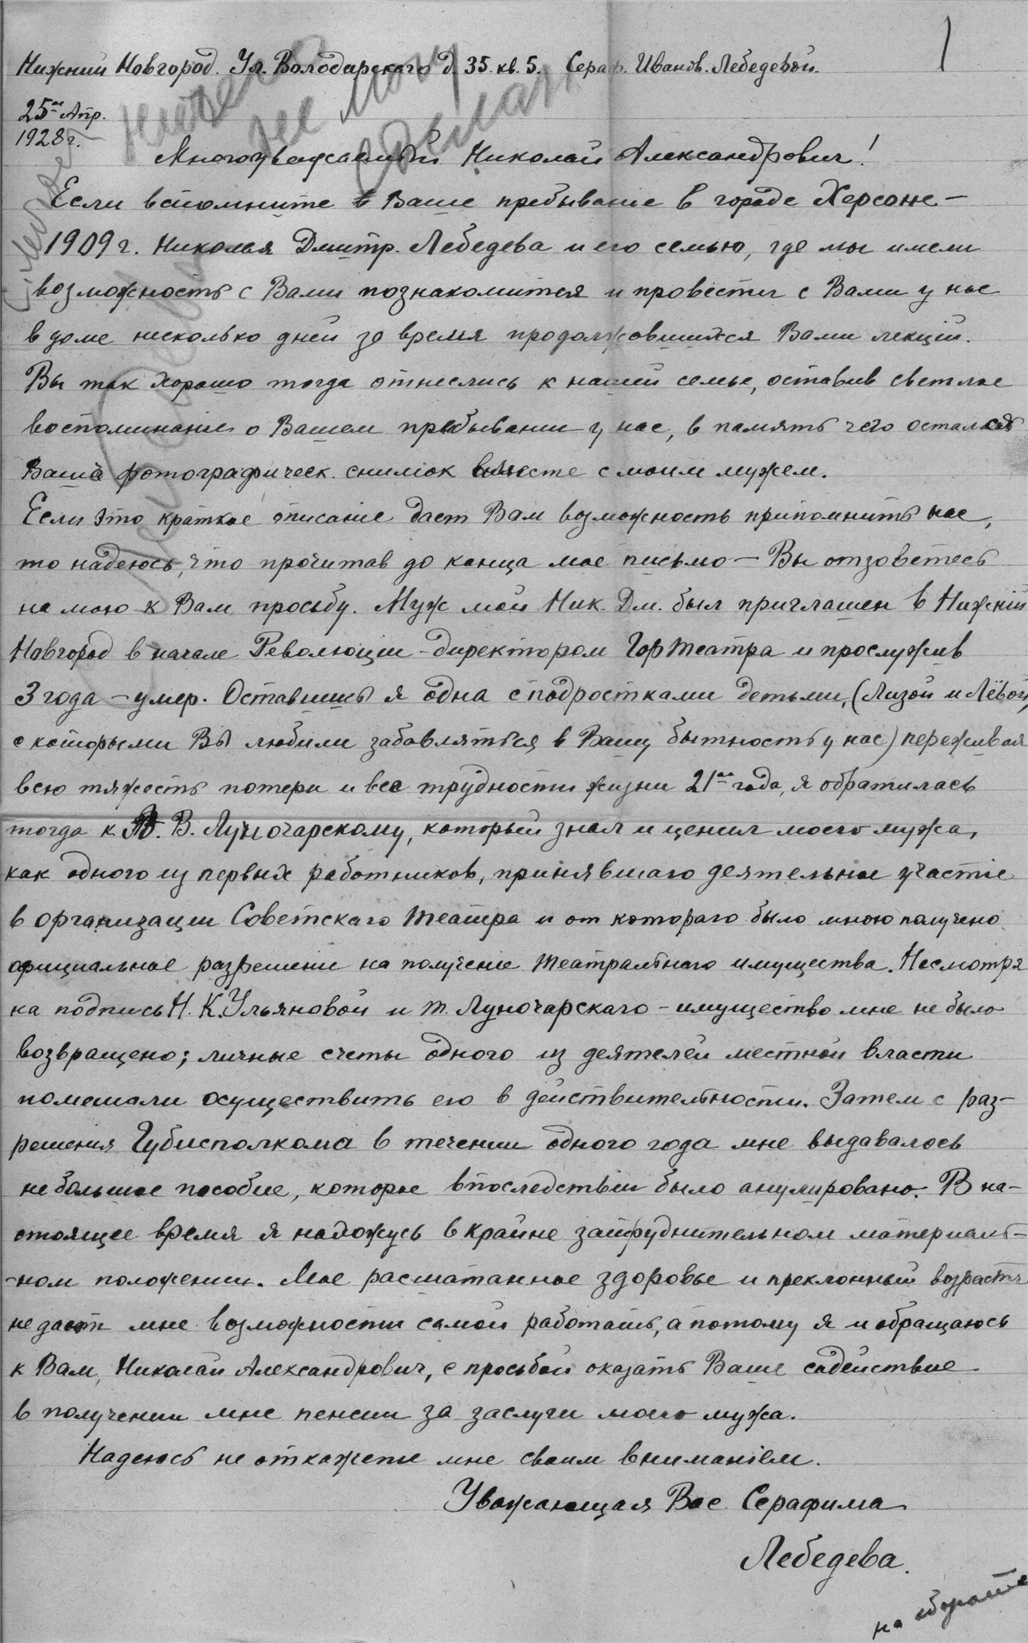 1
Нижний Новгород. Ул. Володарского д. 35. кв. 5. Сераф. Иванов. Лебедевой.
25го Апр.
1928 г.
Ничего
не могу
сделать
Многоуважаемый Николай Александрович!
Если вспомните в Ваше пребывание в городе Херсоне –
1909 г. Николая Дмитр. Лебедева и его семью, где мы имели
возможность с Вами познакомится и провести с Вами у нас
в доме несколько дней за время продолжовшихся Вами лекций.
Вы так хорошо тогда отнеслись к нашей семье, оставив светлое
воспоминание о Вашем пребывании у нас, в память чего остался
Ваш фотографическ. снимок вместе с моим мужем.
Если это краткое описание даст Вам возможность припомнить нас,
то надеюсь, что прочитав до конца мое письмо – Вы отзоветесь
на мою к Вам просьбу. Муж мой Ник. Дм. был приглашен в Нижній
Новгород в начале Революции – директором Гортеатра и прослужив
3 года – умер. Оставшись я одна с подростками детьми, (Лизой и Лёвой,
с которыми Вы любили забавляться в Вашу бытность у нас) переживая
всю тяжесть потери и все трудности жизни 21го года, я обратилась
тогда к А. В. Луночарскому, который знал и ценил моего мужа,
как одного из первых работников, принявшаго деятельное участіе
в организации Советскаго театра и от котораго было мною получено
официальное разрешение на получение театрального имущества. Несмотря
на подпись Н. К. Ульяновой и т. Луночарскаго – имущество мне не было
возвращено; личные счеты одного из деятелей местной власти
помешали осуществить его в действительности. Затем с раз-
решения Губисполкома в течении одного года мне выдавалось
небольшое пособие, которое впоследствіи было анулировано. В на-
стоящее время я нахожусь в крайне затруднительном материаль-
-ном положении. Мое расшатанное здоровье и преклонный возрастъ
не дают мне возможности самой работать, а потому я и обращаюсь
к Вам, Николай Александрович, с просьбой оказать Ваше содействие
в получении мне пенсии за заслуги моего мужа.
Надеюсь не откажете мне своим вниманіем.
Уважающая Вас Серафима
Лебедева.
на обороте